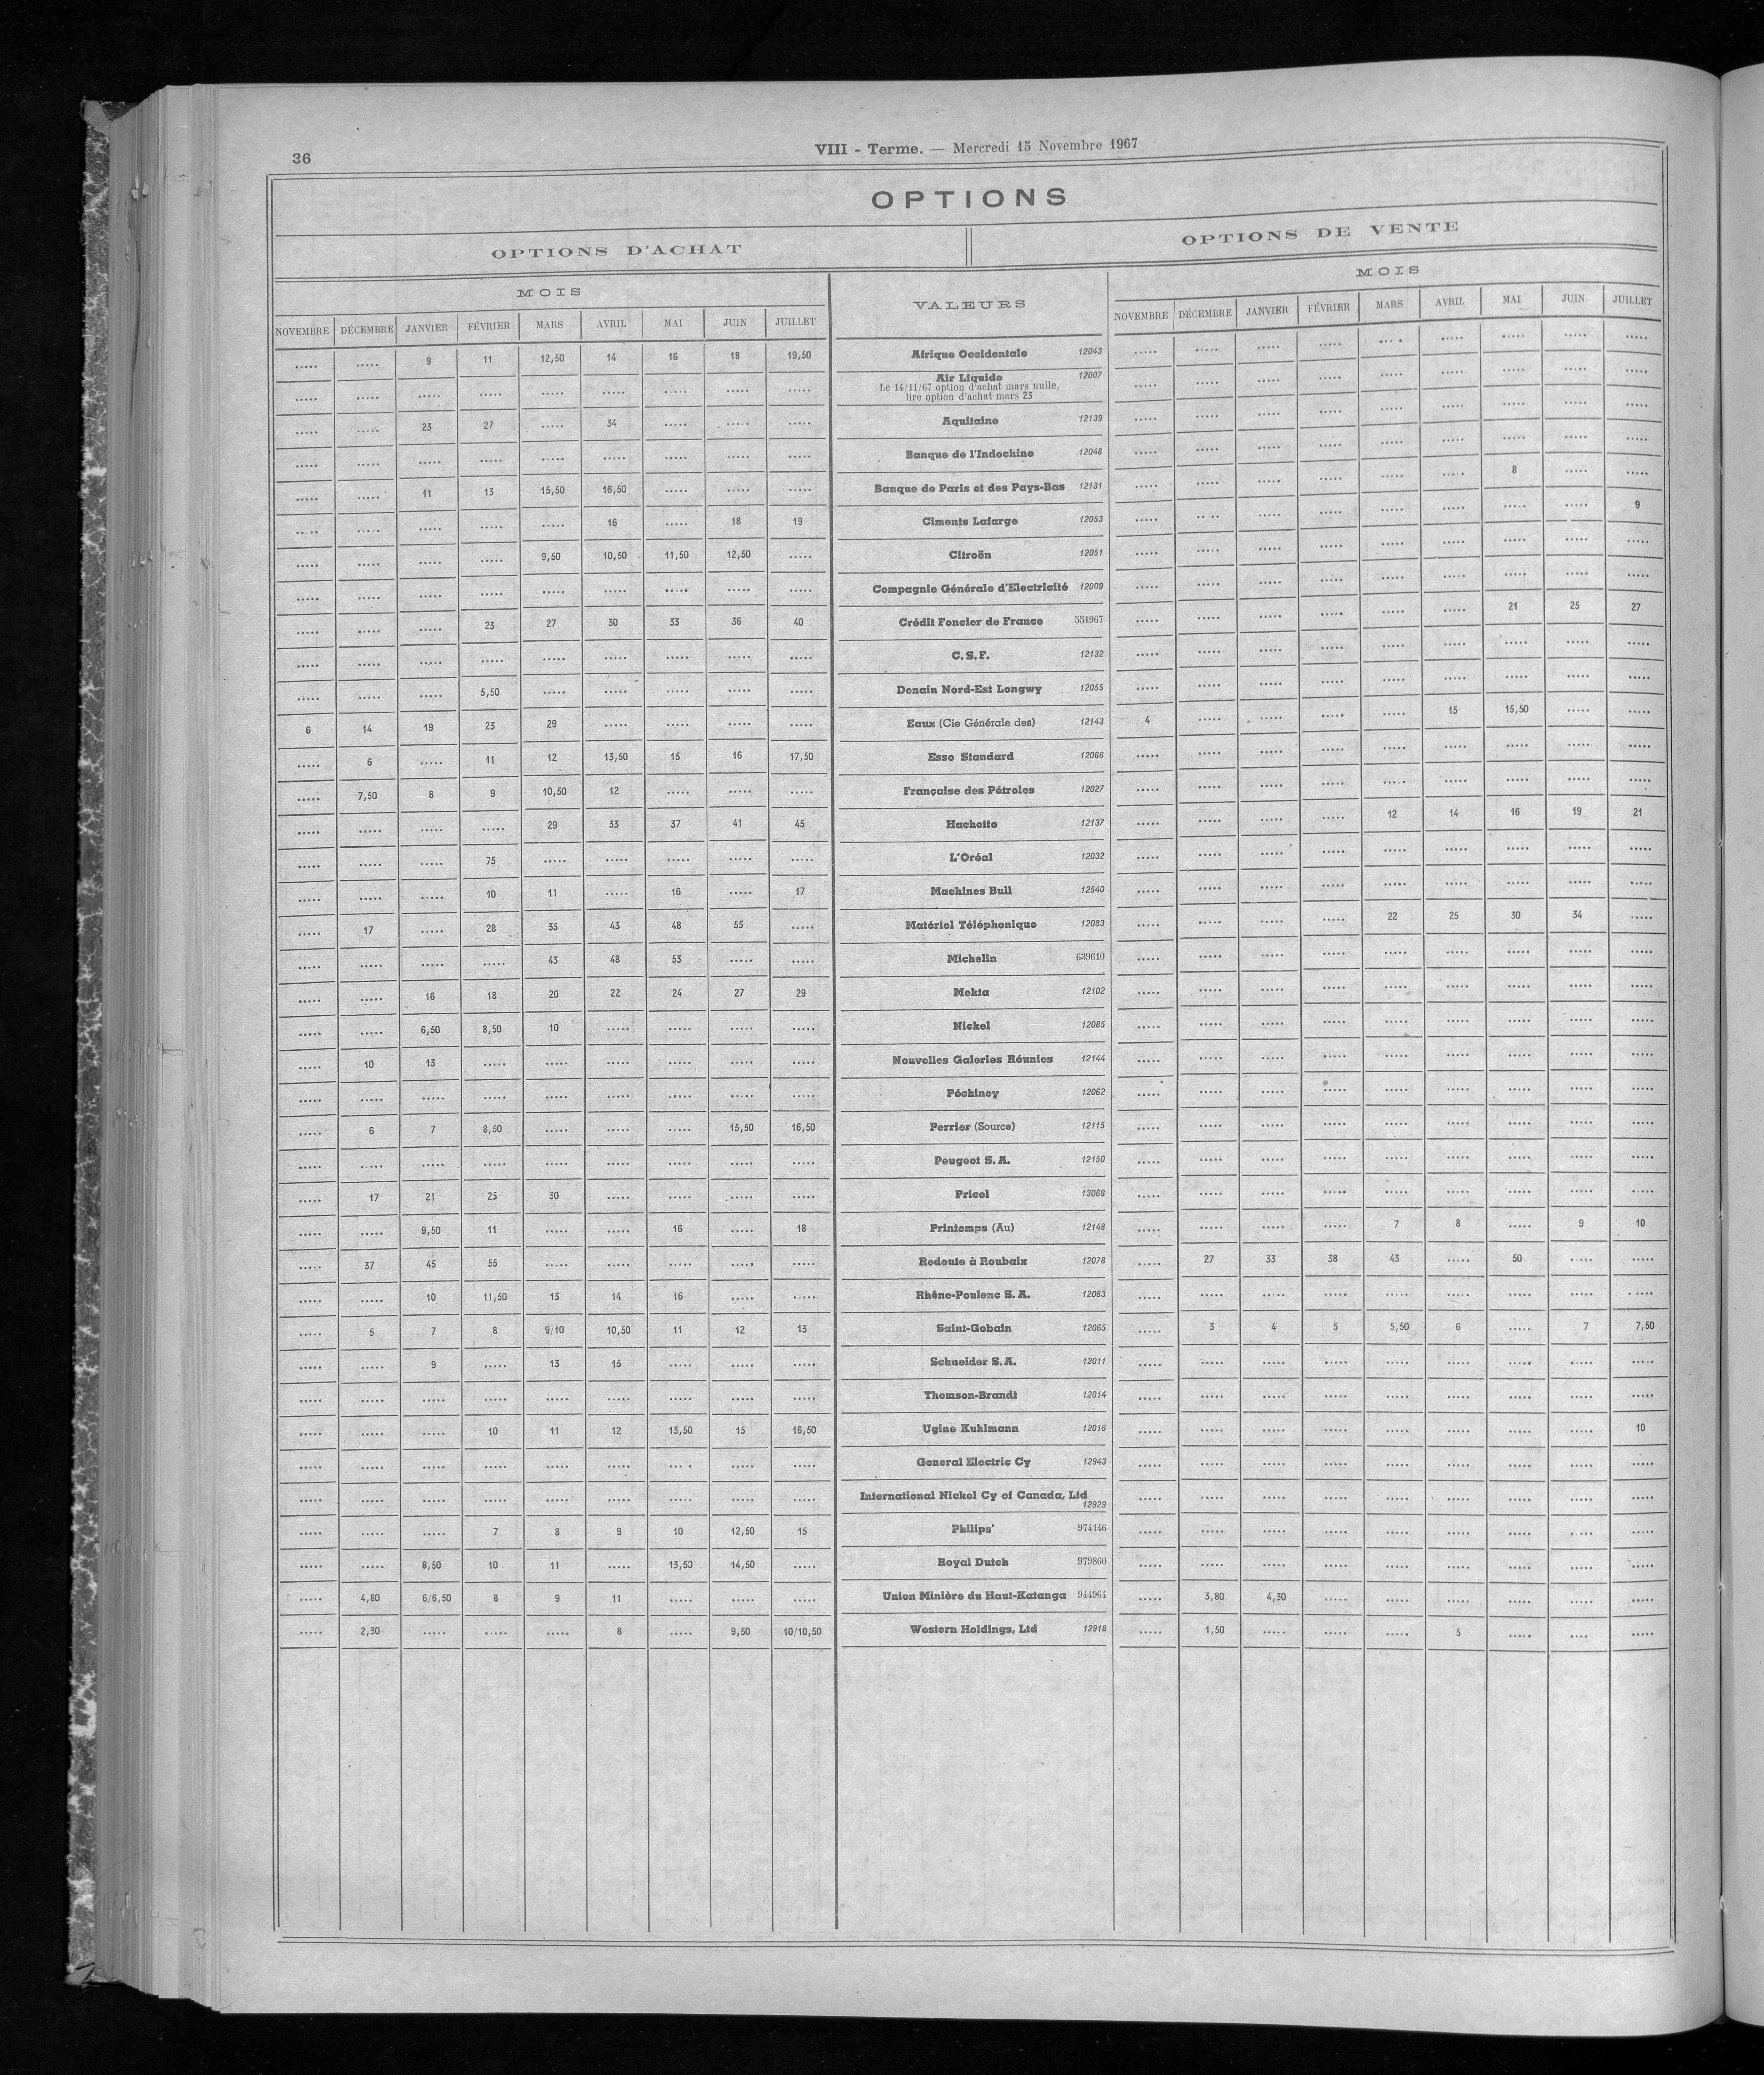 36
VIII - Terme. — Mercredi 15 Novembre 1967
OPTIONS
OPTIONS D'ACHAT OPTIONS DE VENTE
MOIS VALEURS MOIS
NOVEMBRE DÉCEMBRE JANVIER FÉVRIER MARS AVRIL MAI JUIN JUILLET NOVEMBRE DÉCEMBRE JANVIER FÉVRIER MARS AVRIL MAI JUIN JUILLET
..... ..... 9 11 12,50 14 16 18 19,50 Afrique Occidentale 12043 ..... ..... ..... ..... ..... ..... ..... ..... .....
..... ..... ..... ..... ..... ..... ..... ..... ..... Air Liquide 12007 ..... ..... ..... ..... ..... ..... ..... ..... .....
Le 14/11/67 option d'achat mars nulle,
lire option d'achat mars 23
..... ..... 23 27 ..... 34 ..... ..... ..... Aquitaine 12139 ..... ..... ..... ..... ..... ..... ..... ..... .....
..... ..... ..... ..... ..... ..... ..... ..... ..... Banque de l'Indochine 12048 ..... ..... ..... ..... ..... ..... ..... ..... .....
..... ..... 11 13 15,50 16,50 ..... ..... ..... Banque de Paris et des Pays-Bas 12131 ..... ..... ..... ..... ..... ..... 8 ..... .....
..... ..... ..... ..... ..... 16 ..... 18 19 Ciments Lafarge 12053 ..... ..... ..... ..... ..... ..... ..... ..... 9
..... ..... ..... ..... 9,50 10,50 11,50 12,50 ..... Citroën 12051 ..... ..... ..... ..... ..... ..... ..... ..... .....
..... ..... ..... ..... ..... ..... ..... ..... ..... Compagnie Générale d'Electricité 12009 ..... ..... ..... ..... ..... ..... ..... ..... .....
..... ..... ..... 23 27 30 33 36 40 Crédit Foncier de France 551967 ..... ..... ..... ..... ..... ..... 21 25 27
..... ..... ..... ..... ..... ..... ..... ..... ..... C.S.F. 12132 ..... ..... ..... ..... ..... ..... ..... ..... .....
..... ..... ..... 5,50 ..... ..... ..... ..... ..... Denain Nord-Est Longwy 12055 ..... ..... ..... ..... ..... ..... ..... ..... .....
6 14 19 23 29 ..... ..... ..... ..... Eaux (Cie Générale des) 12143 4 ..... ..... ..... ..... 15 15,50 ..... .....
..... 6 ..... 11 12 13,50 15 16 17,50 Esso Standard 12066 ..... ..... ..... ..... ..... ..... ..... ..... .....
..... 7,50 8 9 10,50 12 ..... ..... ..... Française des Pétroles 12027 ..... ..... ..... ..... ..... ..... ..... ..... .....
..... ..... ..... ..... 29 33 37 41 45 Hachette 12137 ..... ..... ..... ..... 12 14 16 19 21
..... ..... ..... 75 ..... ..... ..... ..... ..... L'Oréal 12032 ..... ..... ..... ..... ..... ..... ..... ..... .....
..... ..... ..... 10 11 ..... 16 ..... 17 Machines Bull 12540 ..... ..... ..... ..... ..... ..... ..... ..... .....
..... 17 ..... 28 35 43 48 55 ..... Matériel Téléphonique 12083 ..... ..... ..... ..... 22 25 30 34 .....
..... ..... ..... ..... 43 48 53 ..... ..... Michelin 639610 ..... ..... ..... ..... ..... ..... ..... ..... .....
..... ..... 16 18 20 22 24 27 29 Mokta 12102 ..... ..... ..... ..... ..... ..... ..... ..... .....
..... ..... 6,50 8,50 10 ..... ..... ..... ..... Nickel 12085 ..... ..... ..... ..... ..... ..... ..... ..... .....
..... 10 13 ..... ..... ..... ..... ..... ..... Nouvelles Galeries Réunies 12144 ..... ..... ..... ..... ..... ..... ..... ..... .....
..... ..... ..... ..... ..... ..... ..... ..... ..... Péchiney 12062 ..... ..... ..... ..... ..... ..... ..... ..... .....
..... 6 7 8,50 ..... ..... ..... 15,50 16,50 Perrier (Source) 12115 ..... ..... ..... ..... ..... ..... ..... ..... .....
..... ..... ..... ..... ..... ..... ..... ..... ..... Peugeot S.A. 12150 ..... ..... ..... ..... ..... ..... ..... ..... .....
..... 17 21 25 30 ..... ..... ..... ..... Pricel 13066 ..... ..... ..... ..... ..... ..... ..... ..... .....
..... ..... 9,50 11 ..... ..... 16 ..... 18 Printemps (Au) 12148 ..... ..... ..... ..... 7 8 ..... 9 10
..... 37 45 55 ..... ..... ..... ..... ..... Redoute à Roubaix 12078 ..... 27 33 38 43 ..... 50 ..... .....
..... ..... 10 11,50 13 14 16 ..... ..... Rhône-Poulenc S.A. 12063 ..... ..... ..... ..... ..... ..... ..... ..... .....
..... 5 7 8 9/10 10,50 11 12 13 Saint-Gobain 12065 ..... 3 4 5 5,50 6 ..... 7 7,50
..... ..... 9 ..... 13 15 ..... ..... ..... Schneider S.A. 12011 ..... ..... ..... ..... ..... ..... ..... ..... .....
..... ..... ..... ..... ..... ..... ..... ..... ..... Thomson-Brandt 12014 ..... ..... ..... ..... ..... ..... ..... ..... .....
..... ..... ..... 10 11 12 13,50 15 16,50 Ugine Kuhlmann 12016 ..... ..... ..... ..... ..... ..... ..... ..... 10
..... ..... ..... ..... ..... ..... ..... ..... ..... General Electric Cy 12943 ..... ..... ..... ..... ..... ..... ..... ..... .....
..... ..... ..... ..... ..... ..... ..... ..... ..... International Nickel Cy of Canada, Ltd ..... ..... ..... ..... ..... ..... ..... ..... .....
12929
..... ..... ..... 7 8 9 10 12,50 15 Philips' 974146 ..... ..... ..... ..... ..... ..... ..... ..... .....
..... ..... 8,50 10 11 ..... 13,50 14,50 ..... Royal Dutch 979860 ..... ..... ..... ..... ..... ..... ..... ..... .....
..... 4,80 6/6,50 8 9 11 ..... ..... ..... Union Minière du Haut-Katanga 944964 ..... 3,80 4,30 ..... ..... ..... ..... ..... .....
..... 2,30 ..... ..... ..... 8 ..... 9,50 10/10,50 Western Holdings, Ltd 12918 ..... 1,50 ..... ..... ..... 5 ..... .... .....